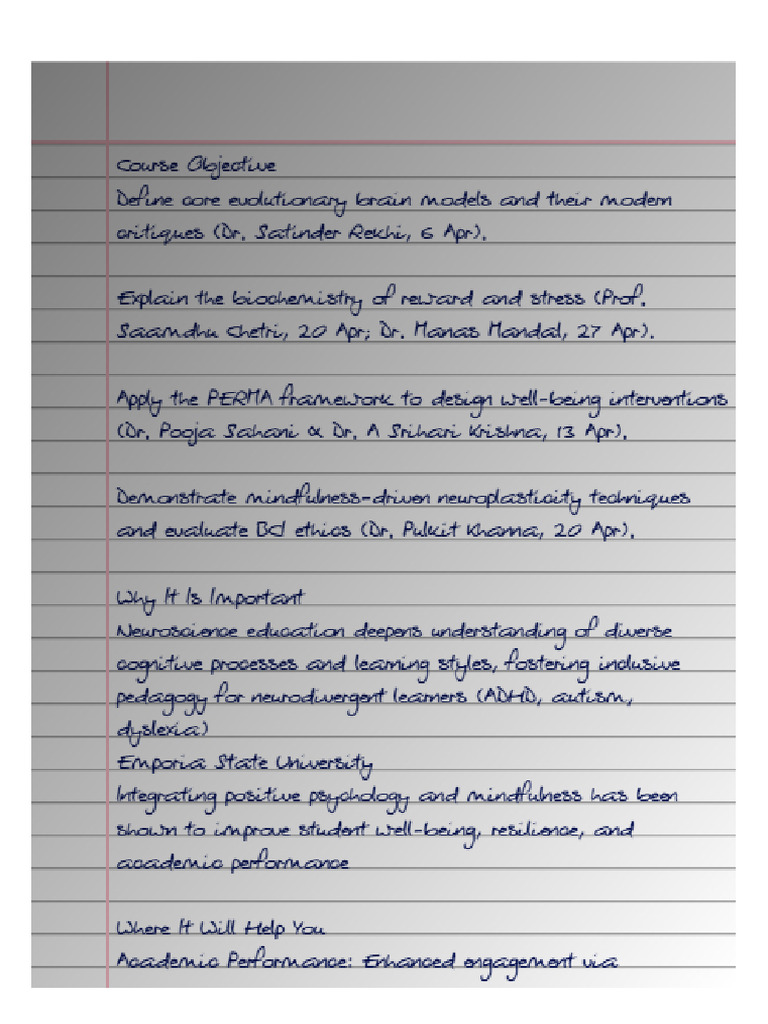 Course Objective
Define core evolutionary brain models and their modern
critiques (Dr. Satinder Rekhi, 6 Apr).
Explain the biochemistry of reward and stress (Prof.
Saamdhu Chetri, 20 Apr; Dr. Manas Mandal, 27 Apr).
Apply the PERMA framework to design well-being interventions
(Dr. Pooja Sahani & Dr. A Srihari Krishna, 13 Apr).
Demonstrate mindfulness-driven neuroplasticity techniques
and evaluate BCI ethics (Dr. Pulkit Khanna, 20 Apr).
Why It Is Important
Neuroscience education deepens understanding of diverse
cognitive processes and learning styles, fostering inclusive
pedagogy for neurodivergent learners (ADHD, autism,
dyslexia)
Emporia State University
Integrating positive psychology and mindfulness has been
shown to improve student well-being, resilience, and
academic performance
Where It Will Help You
Academic Performance: Enhanced engagement via